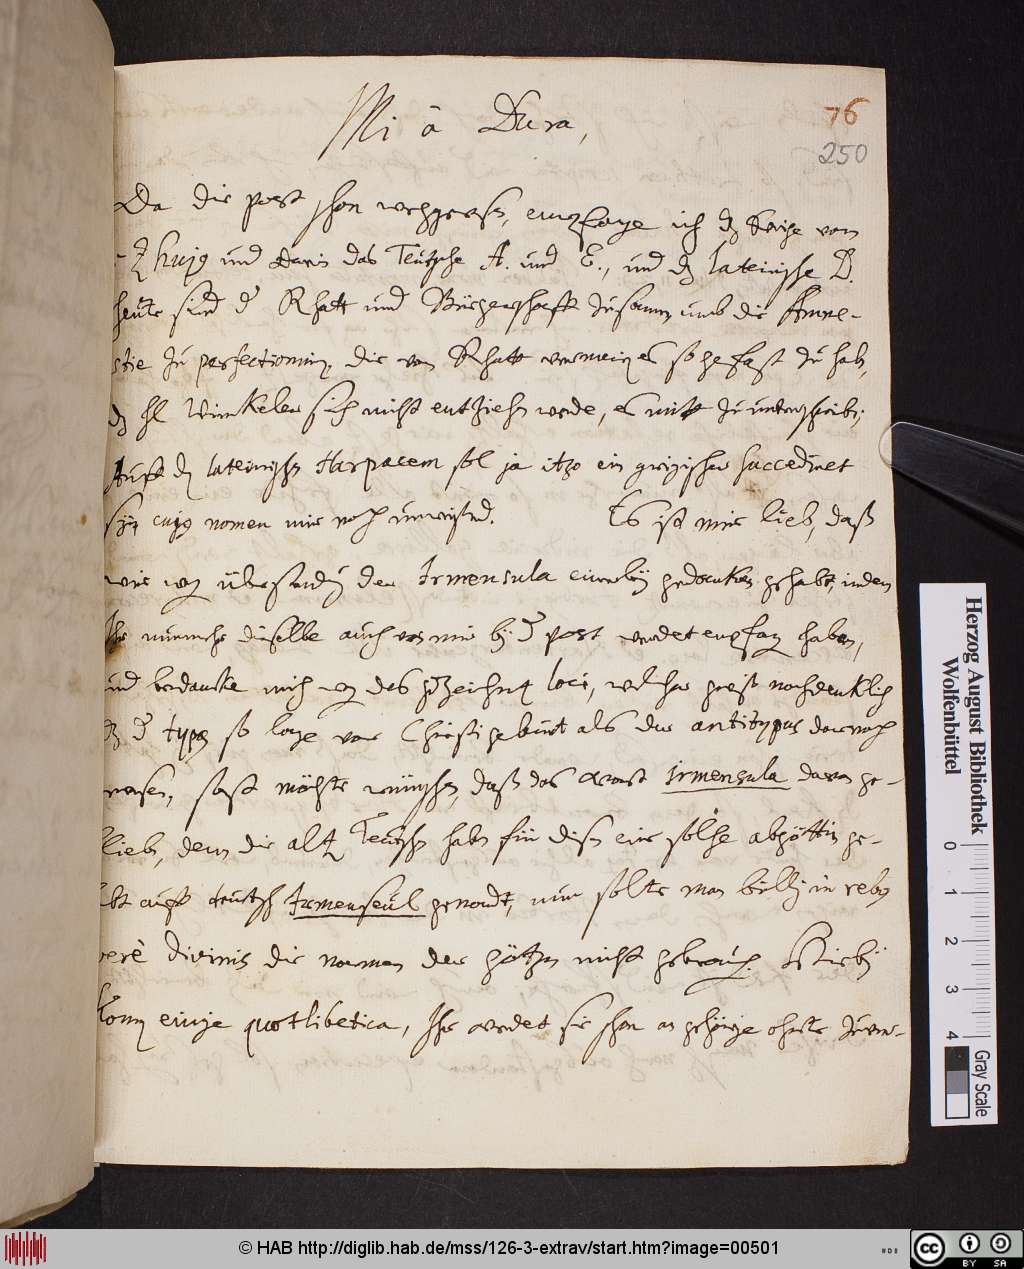 Mi à Dura,
76
250
Da die post schon weggewesen, empfange ich dz Seinige vom
huius und darin das Teutsche A. und E., und dz lateinische D.
heute sind der Rhatt und Bürgerschafft zusammen umb die Amne-
stie zu perfectioniren, die von Rhatt vermeinen es so gefast zu haben,
dz H Winkeler sich nicht entziehen werde, es mitt zu unterschreiben,
Auff den lateinischen Harpacem sol ja itzo ein griegischer succediret
sein cuius nomen mir noch unwissend. Es ist mir lieb, daß
wir wegen übersendung der Irmensula einerley gedancken gehabt, indem
Ihr nunmehr dieselbe auch von mir bey der post werdet empfangen haben,
und bedancke mich wegen des gezeichneten loci, welcher gewiß nachdencklich
dz der typus so lange vor Christi geburt als der antitypus darnach
gewesen, fast möchte wünschen, daß das wort irmensula davon ge-
blieben, denn die alten Teutschen haben für diesen eine solche abgöttin ge-
habt auff teutsch Irmenseul genandt, nun solte man billig in rebus
verè divinis die namen der götzen nicht gebrauchen. Hierbey
komen einige quotlibetica, Ihr werdet sie schon an gehörige ohrte zu ver-
Herzog August Bibliothek
Wolfenbüttel
0 1 2 3 4
Gray Scale
© HAB http://diglib.hab.de/mss/126-3-extrav/start.htm?image=00501
HAB
cc BY SA